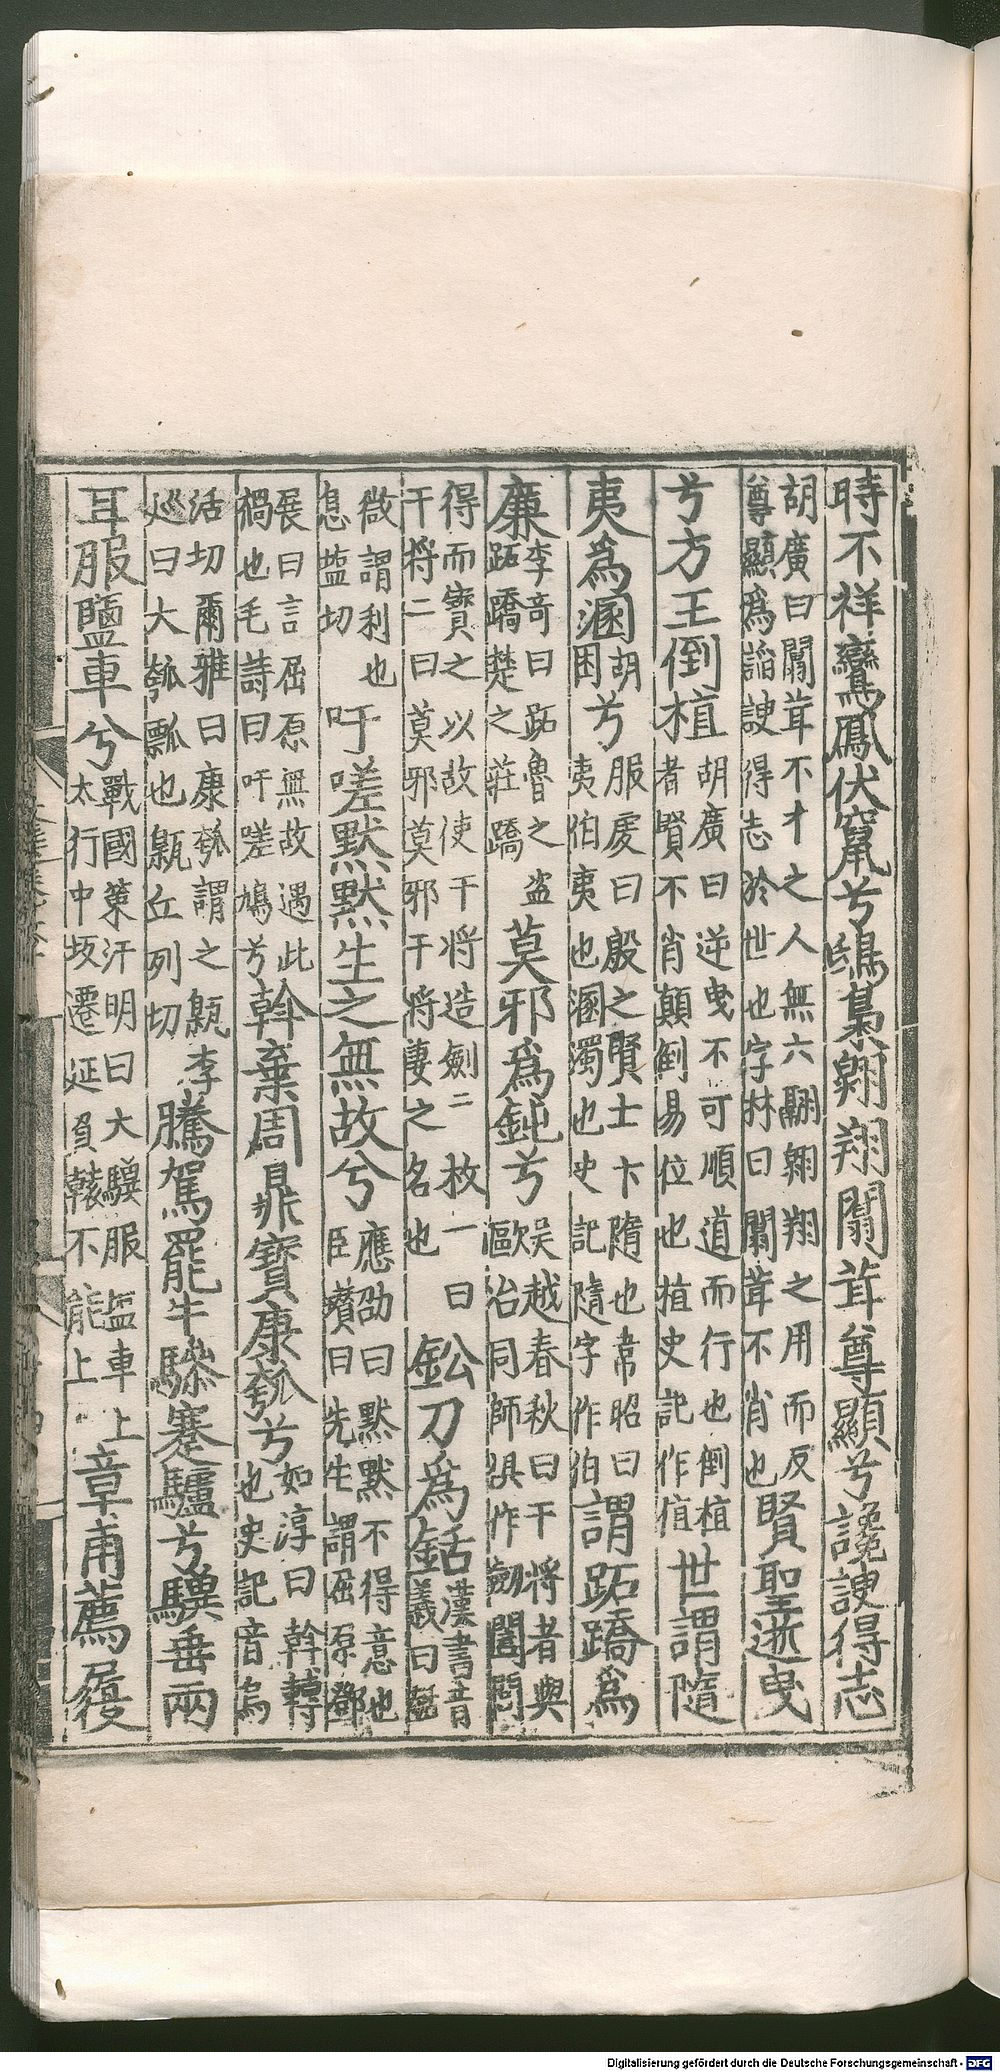 時不祥鸞鳳伏竄兮鴟梟翱翔闒茸尊顯兮讒諛得志
胡廣曰闒茸不才之人無六翮翱翔之用而反
尊顯爲諂諛得志於世也字林曰闒茸不肖也
賢聖逝曳
兮方王倒植
胡廣曰逆曳不可順道而行也倒植
者賢不肖顛倒易位也植史記作值
世謂隨
夷爲溷
胡
困
兮
服虔曰殷之賢士卞隨也韋昭曰
夷伯夷也溷濁也史記隨字作伯
謂跖蹻爲
廉
李竒曰跖魯之盗
跖蹻楚之莊蹻
莫邪爲鈍兮
吴越春秋曰干将者與
歐冶同師俱作劒闔閭
得而寳之以故使干将造劒二枚一曰
干将二曰莫邪莫邪干将妻之名也
鈆刀爲銛
漢書音
義曰銛
徹謂利也
息塩切
吁嗟默默生之無故兮
應劭曰默默不得意也
臣瓚曰先生謂屈原鄧
展曰言屈原無故遇此
禍也毛詩曰吁嗟鳩兮
斡棄周鼎寳康瓠兮
如淳曰斡轉
也史記音烏
活切爾雅曰康瓠謂之甈李
巡曰大瓠瓢也甈丘列切
騰駕罷牛驂蹇驢兮驥垂兩
耳服鹽車兮
戰國策汗明曰大驥服塩車上
太行中坂遷延負轅不能上
章甫薦屨
Digitalisierung gefördert durch die Deutsche Forschungsgemeinschaft - DFG